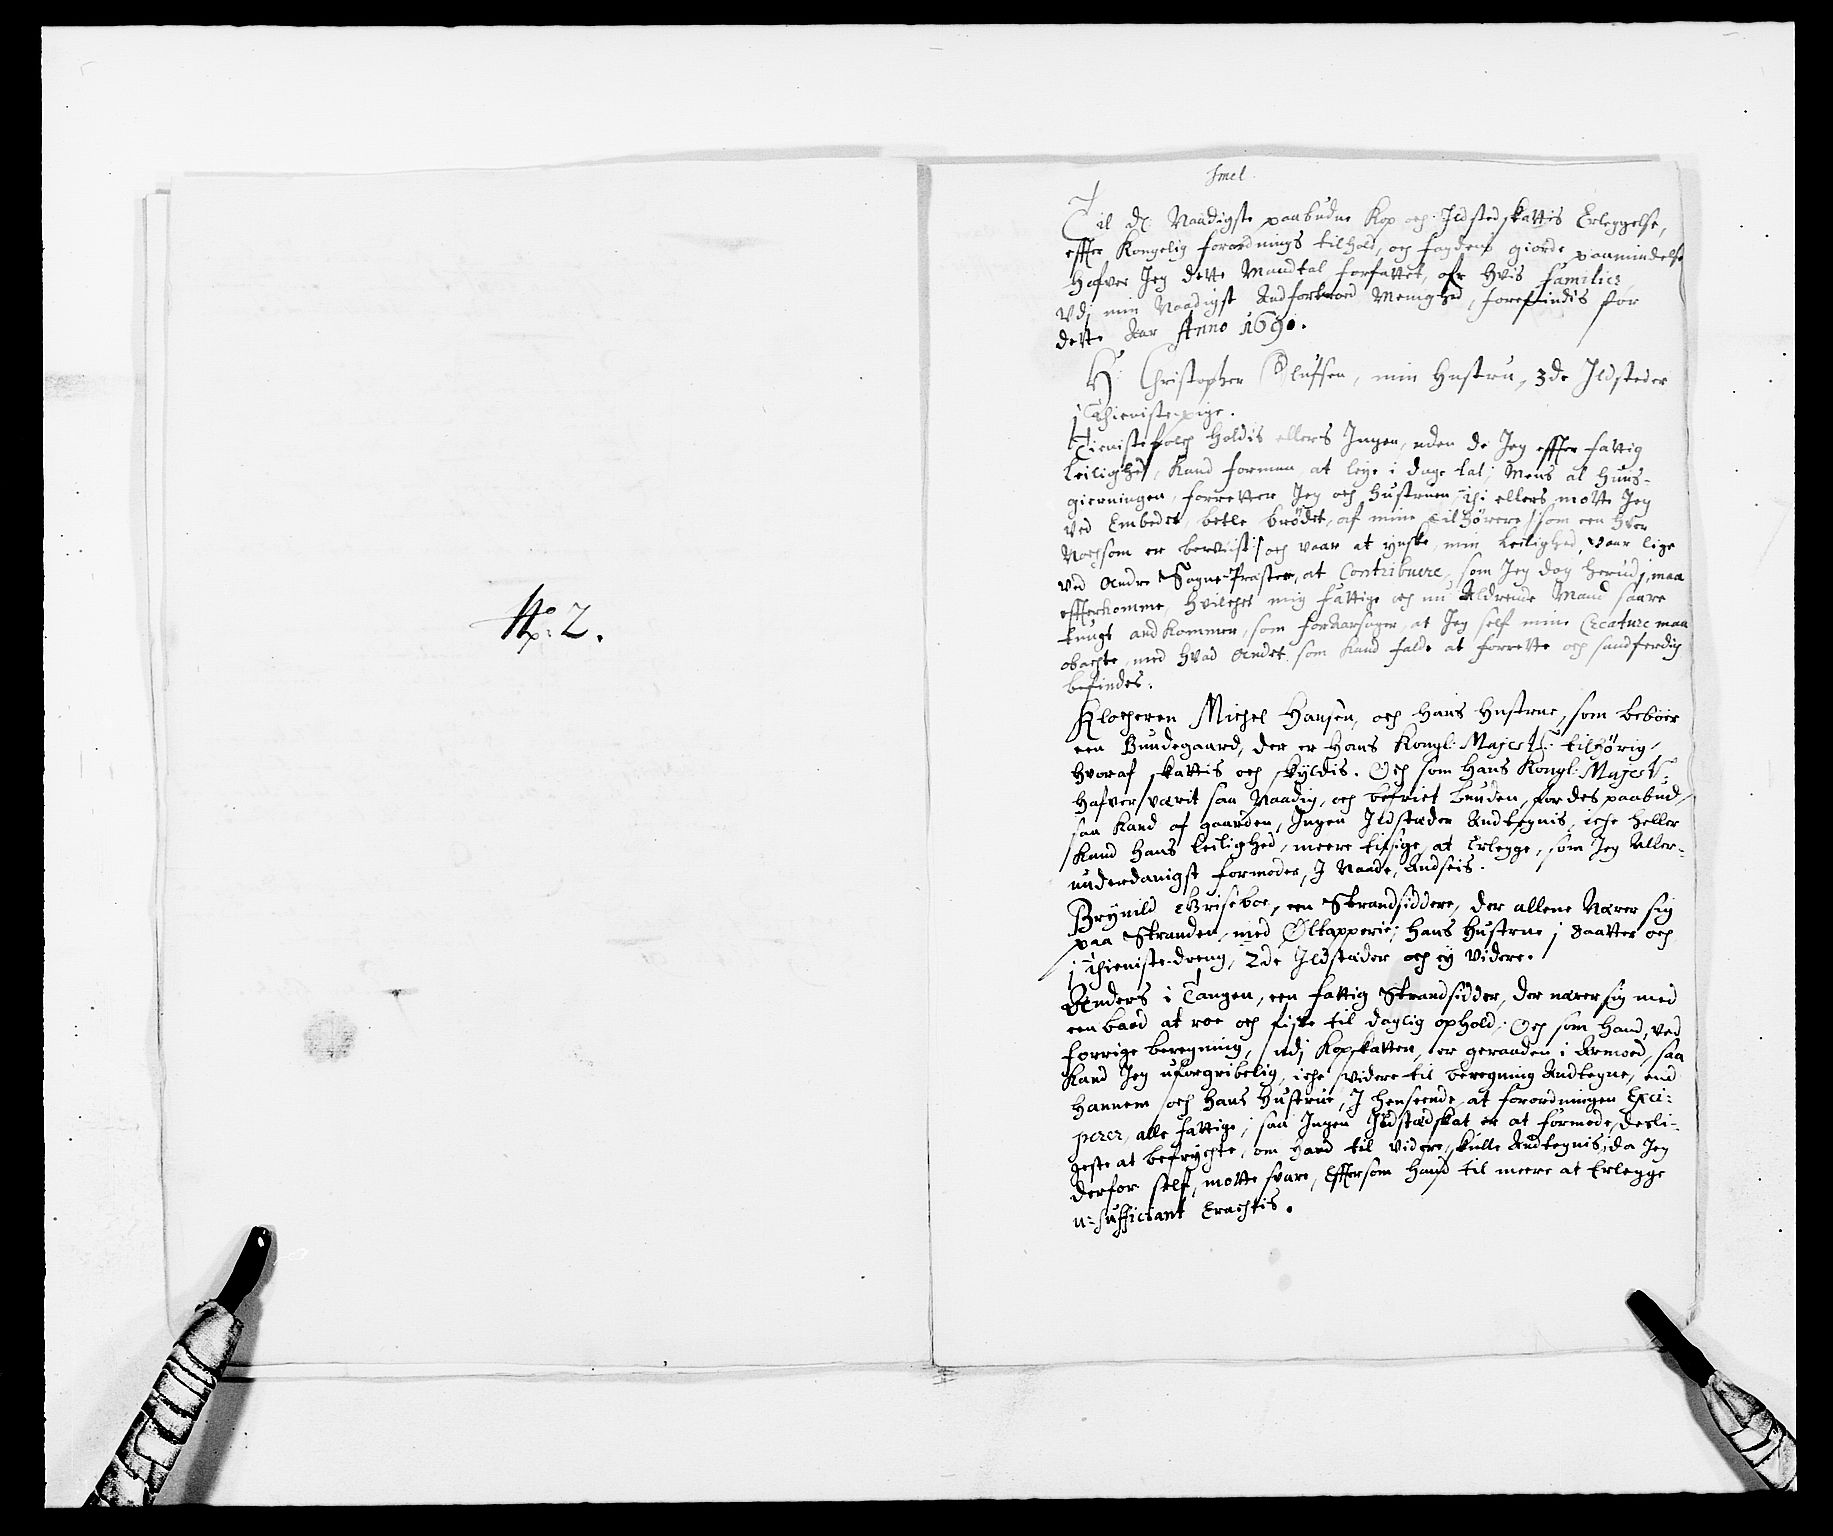 No: 2.
Smel
Til dℓ Naadigste paabudne Kop och Ildstedskattis Erleggelse,
effter Kongelig forordnings tilhold, och fogdens giorde paamindelse
Hafver Jeg dette Mandtal forfattet, ofr hvis Familier,
Vdj min Naadigst Andfortroed Menighed, forefindis for
dette Aar Anno 1690.
Hr Christopher Olufsen, min Hustru, 3de Ildsteder
j Thienistepige.
Tienistefolch holdis ellers Ingen, uden de Jeg effter fattig
leilighed, Kand formaa at leye i dage tal; Mens al Huus-
gierningen, forretter Jeg och Hustruen, thi ellers motte Jeg
ved Embedet, betle brødet, af mine tilhørere/ som een hver
Nochsom er bevist:/ och vaar at ynske, min leilighed, vaar lige
ved Andre Sogne-Præster, at Contribuere, som Jeg dog herudj, maa
effterkomme, hvilchet mig fattige och nu Aldrende Mand saare
tungt andkommer, som foraarsager, at Jeg self mine Creature maa
obachte, med hvad Andet som Kand falde at forrette och sandferdig
befindes.
Klocheren Michel Hansen, och Hans Hustrue, som beboer
een Bundegaard, der er Hans Kongl: Majestt: tilhørig,
hvoraf skattis och skyldis. Och som Hans Kongl: Majestt:
Hafver værit saa Naadig, och befriet bunden, for des paabud,
saa Kand af gaarden, Ingen Ildstæder Andtegnis, iche heller
Kand Hans leilighed, meere tilsige, at Erlegge, som Jeg Aller-
underdanigst formoder, I Naade, Andseis.
Brynild Griseboe, een Strandsiddere, der allene Nærer sig
paa Stranden, med Øltapperie; Hans Hustrue j Daatter och
j Thieniste-dreng, 2de Ildstæder och ey Videre.
Anders i Tangen, een fattig Strandsidder, der nærer sig med
een baad at roe och fiske til daglig ophold; Och som Hand, ved
forrige beregning, udj Kopskatten, er geraaden i Armoed, saa
Kand Jeg uforgribelig, iche videre til beregning Andtegne, end
hannem och Hans Hustrue, I henseende, at forordningen Exci-
perer, alle fattige; saa Ingen Ildstædskat er at formode, desli-
geste at befrychte, om Hand til Videre, skulle Andtegnis, da Jeg
derfor self, motte svare, Effterson Hand til meere at Erlegge
u-sufficiant Erachtis.